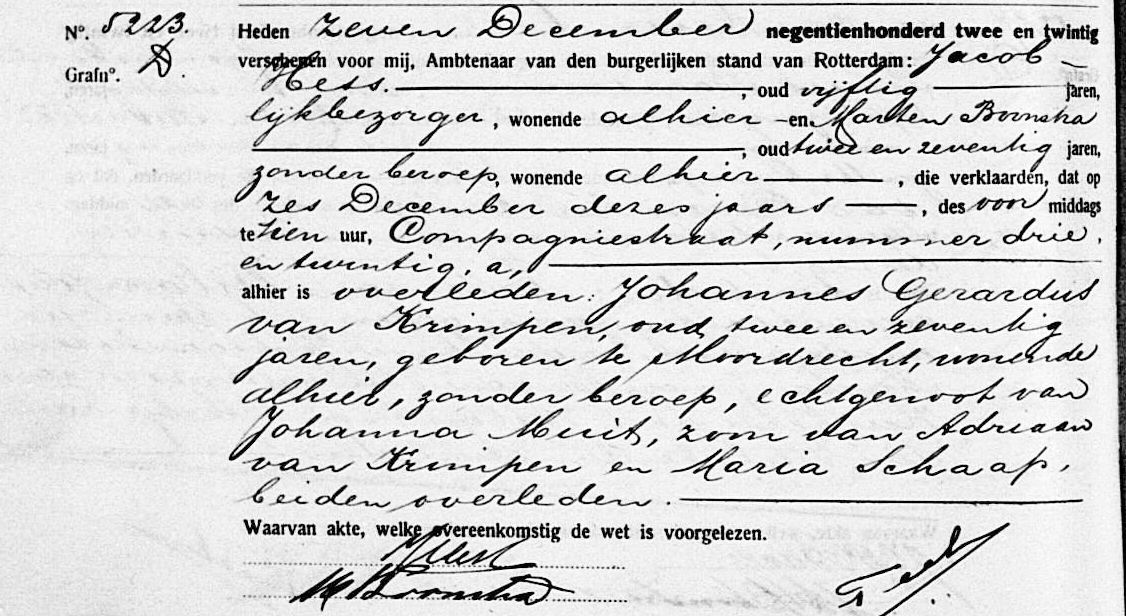 Nº. 5223.
Heden zeven December negentienhonderd twee en twintig
verschenen voor mij, Ambtenaar van den burgerlijken stand van Rotterdam: Jacob
Grafnº.
Hess. , oud vijftig jaren,
lijkbezorger, wonende alhier en Marten Boonstra
, oud twee en zeventig jaren,
zonder beroep, wonende alhier , die verklaarden, dat op
zes December dezes jaars , des voor middags
te tien uur, Compagniestraat, nummer drie
en twintig a,
alhier is overleden: Johannes Gerardus
van Krimpen, oud twee en zeventig
jaren, geboren te Moordrecht, wonende
alhier, zonder beroep, echtgenoot van
Johanna , zoon van Adriaan
van Krimpen en Maria Schaap,
beiden overleden.
Waarvan akte, welke overeenkomstig de wet is voorgelezen.
JHess
M Boonstra